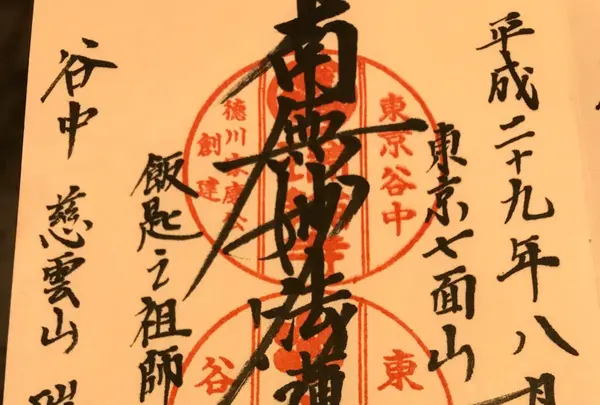 平成二十九年八月
東京七面山
南無妙法蓮
飯匙之祖師
谷中 慈雲山
東京谷中
徳川家康公
創建
東
谷